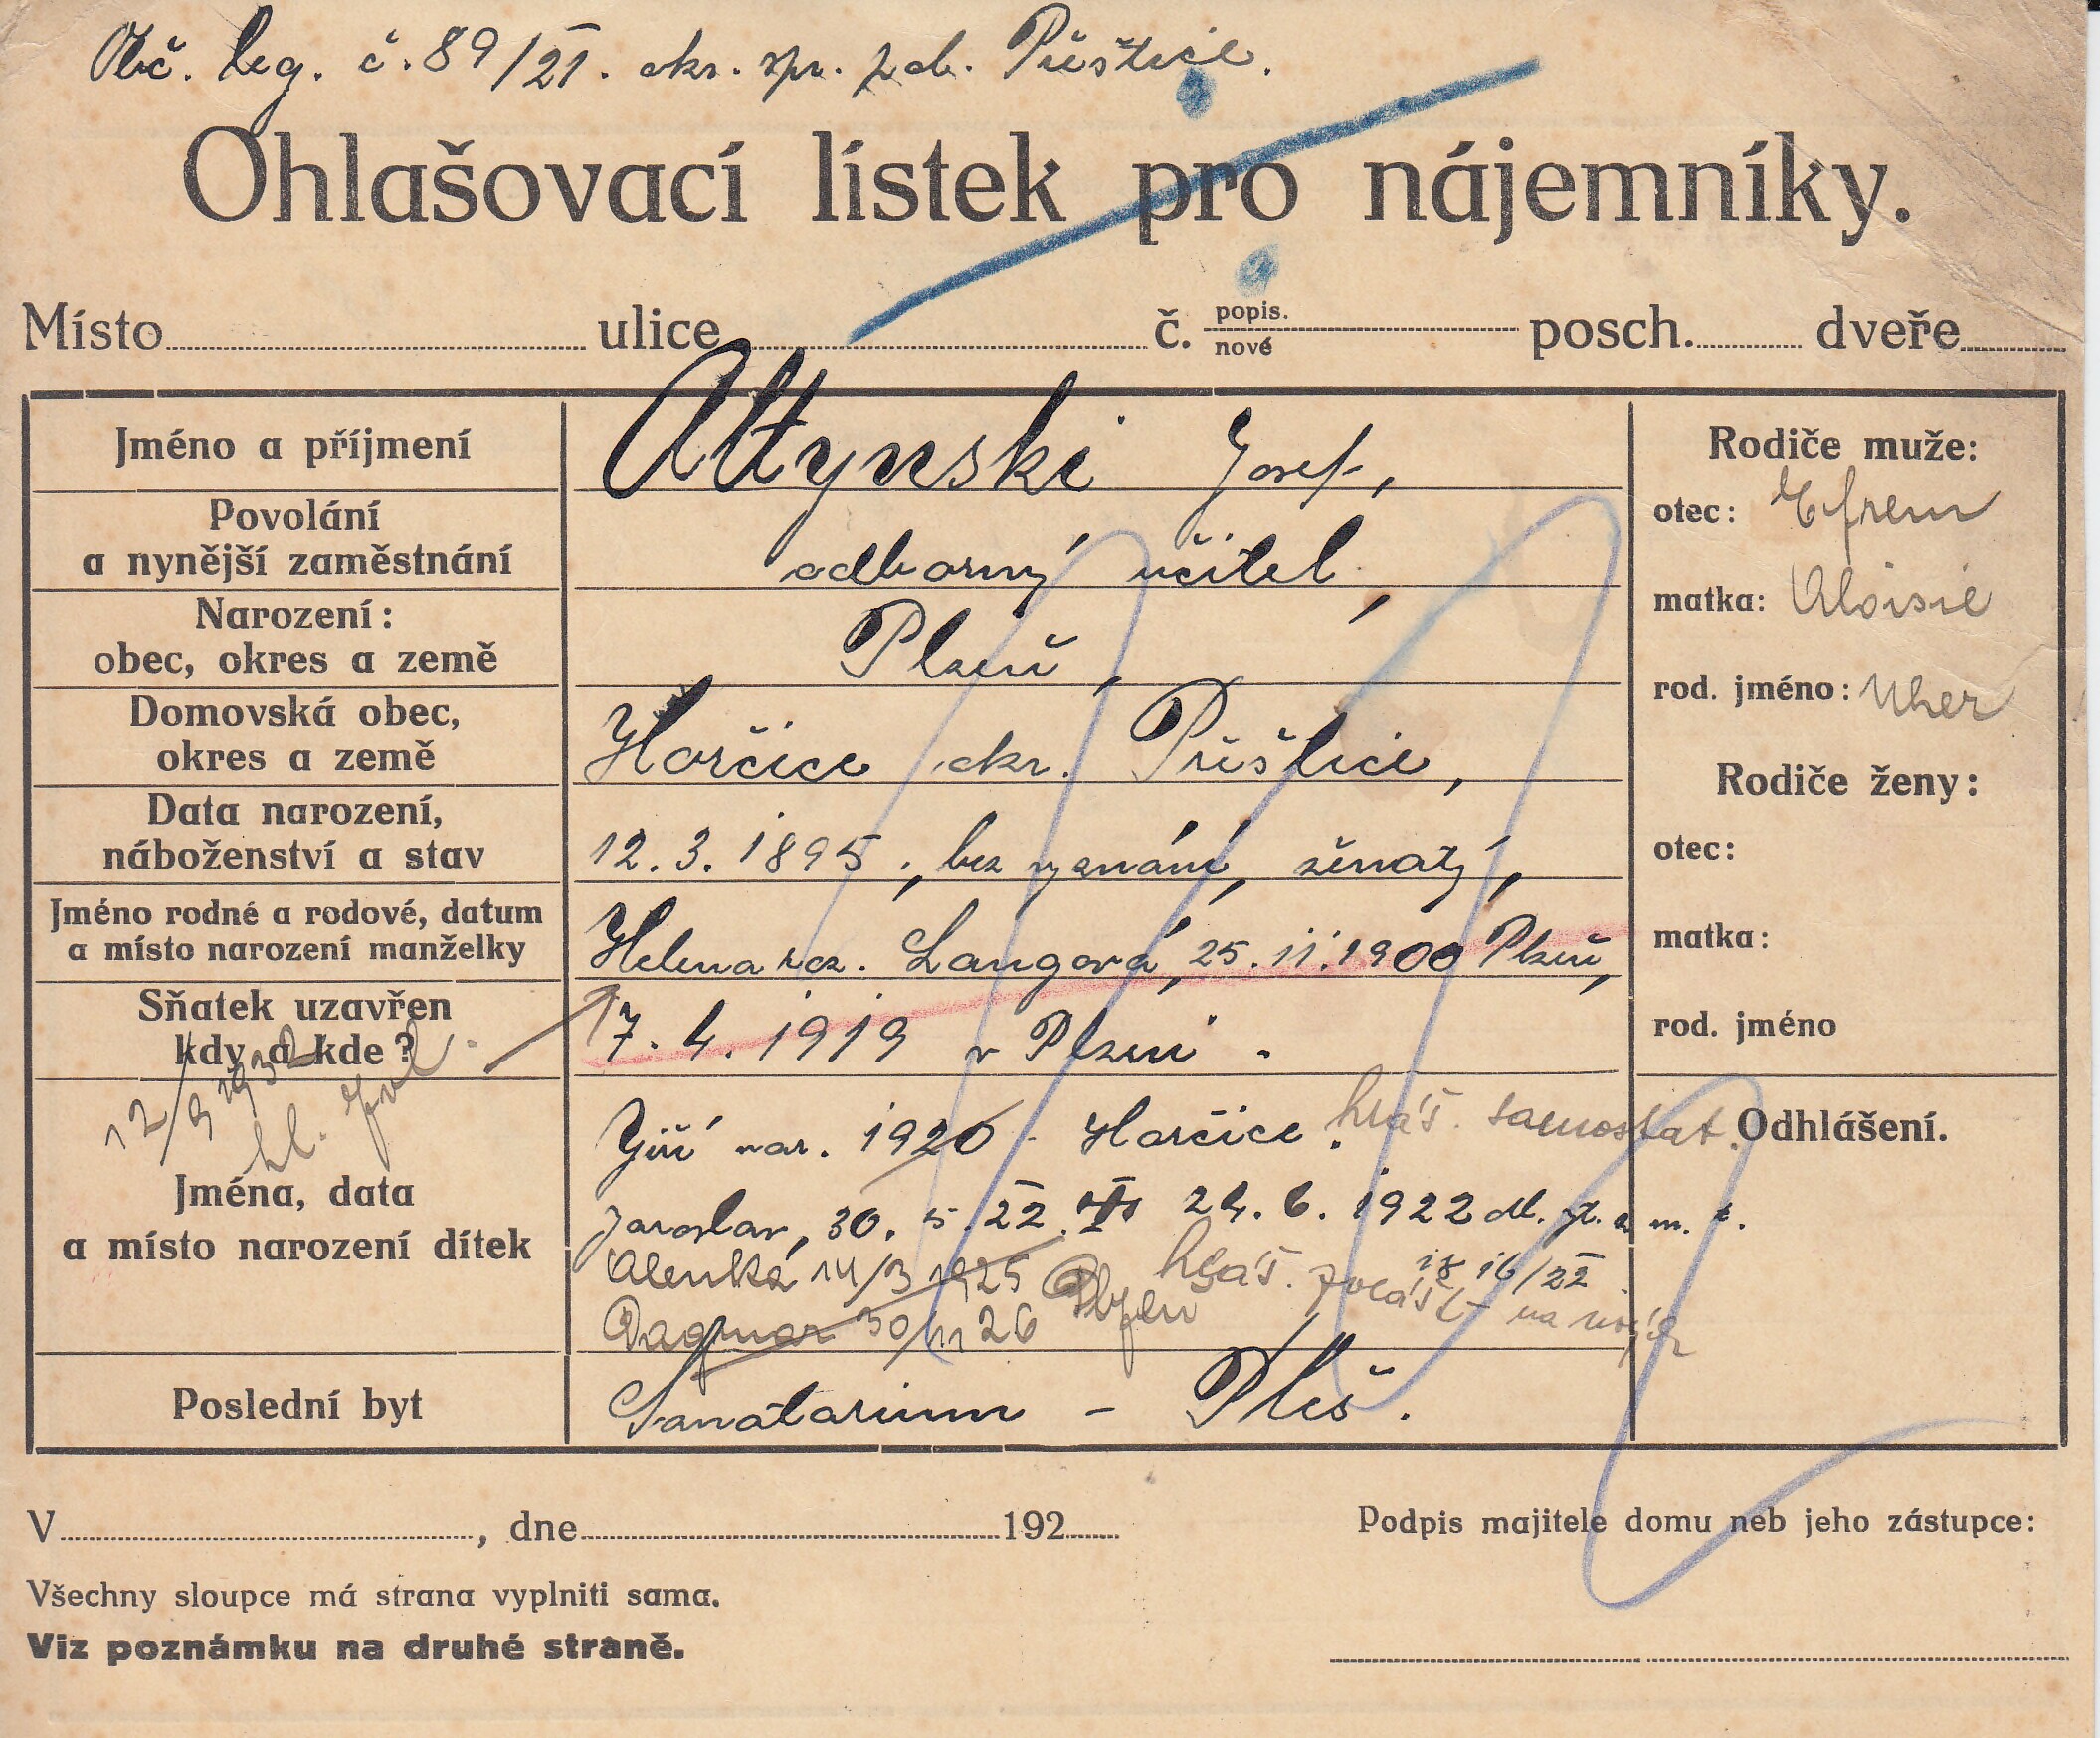 Obč. leg. č. 89/21. okr. spr. pol. Přeštice.
Ohlašovací lístek pro nájemníky.
Místo ulice č. popis. nové posch. dveře
Jméno a příjmení Altynski Josef,
Rodiče muže:
otec: Efrem
Povolání
a nynější zaměstnání odborný učitel,
matka: Aloisie
Narození:
obec, okres a země Plzeň,
rod. jméno: Uher
Domovská obec,
okres a země Horčice okr. Přeštice,
Rodiče ženy:
Data narození,
náboženství a stav 12. 3. 1895., bez vyznání, ženatý,
otec:
Jméno rodné a rodové, datum
a místo narození manželky Helena roz. Langová, 25. 11. 1900 Plzeň,
matka:
Sňatek uzavřen
kdy a kde? 7. 4. 1919 v Plzni.
rod. jméno
12/9 1932
Jména, data
a místo narození dítek
Jiří nar. 1920 - Horčice. hláš. samostat.
Odhlášení.
Jaroslav, 30. 5. 22. † 24. 6. 1922 dl. m.
Alenka 14/3 1925 Plzeň hláš. zvlášť 16/22
Dagmar 30/11 26
Poslední byt Sanatorium - Pleš.
V , dne 192
Podpis majitele domu neb jeho zástupce:
Všechny sloupce má strana vyplniti sama.
Viz poznámku na druhé straně.